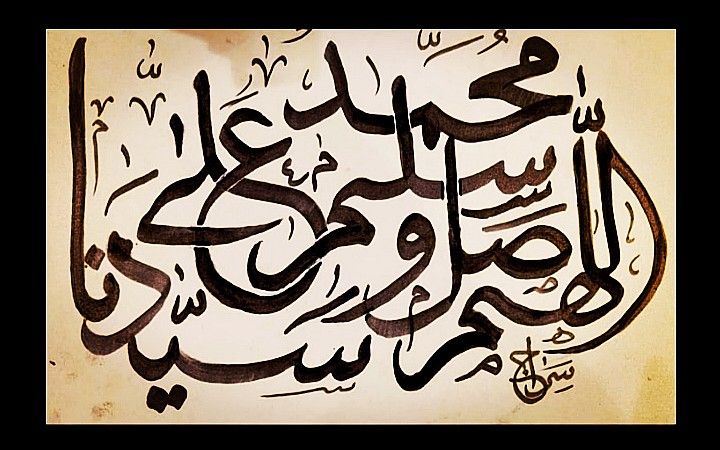 اللهم صل وسلم على سيدنا محمد
سراج